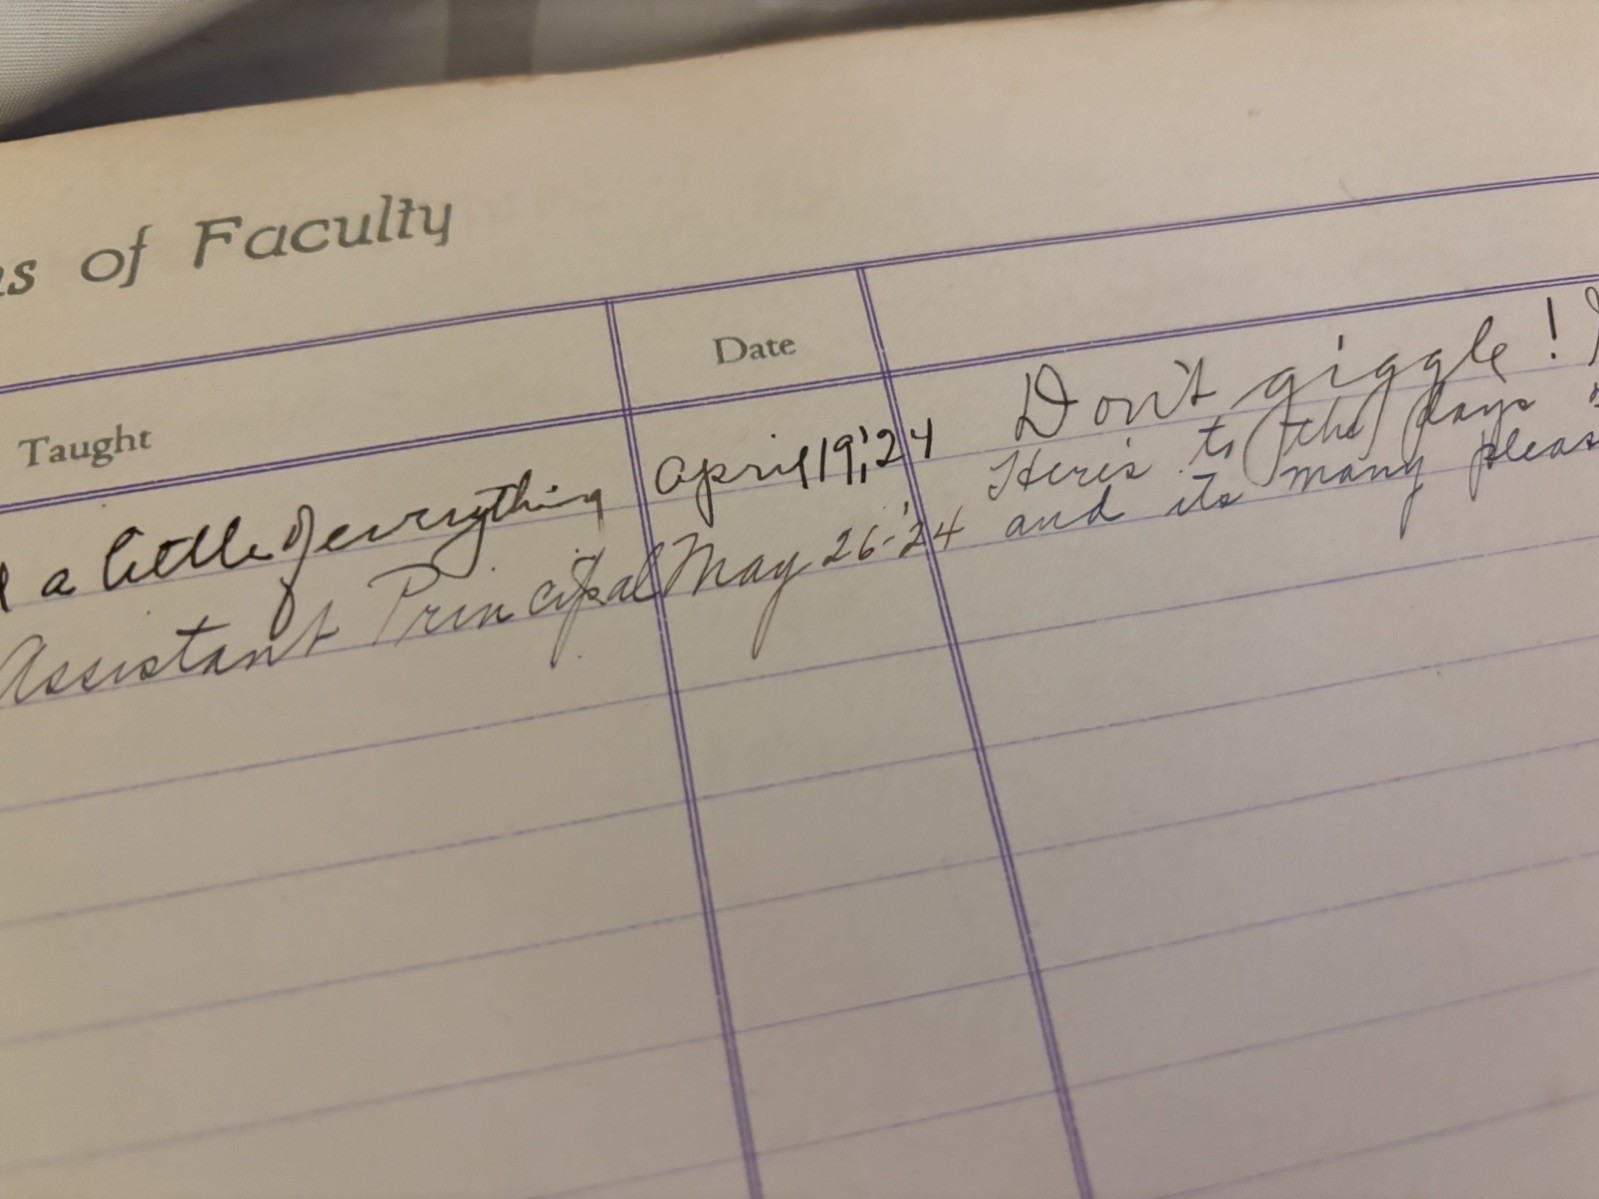 of Faculty
Taught
Date
a little of everything April 19, '24 Don't giggle!
Assistant Principal May 26-'24 Here's to the days
and its many pleas